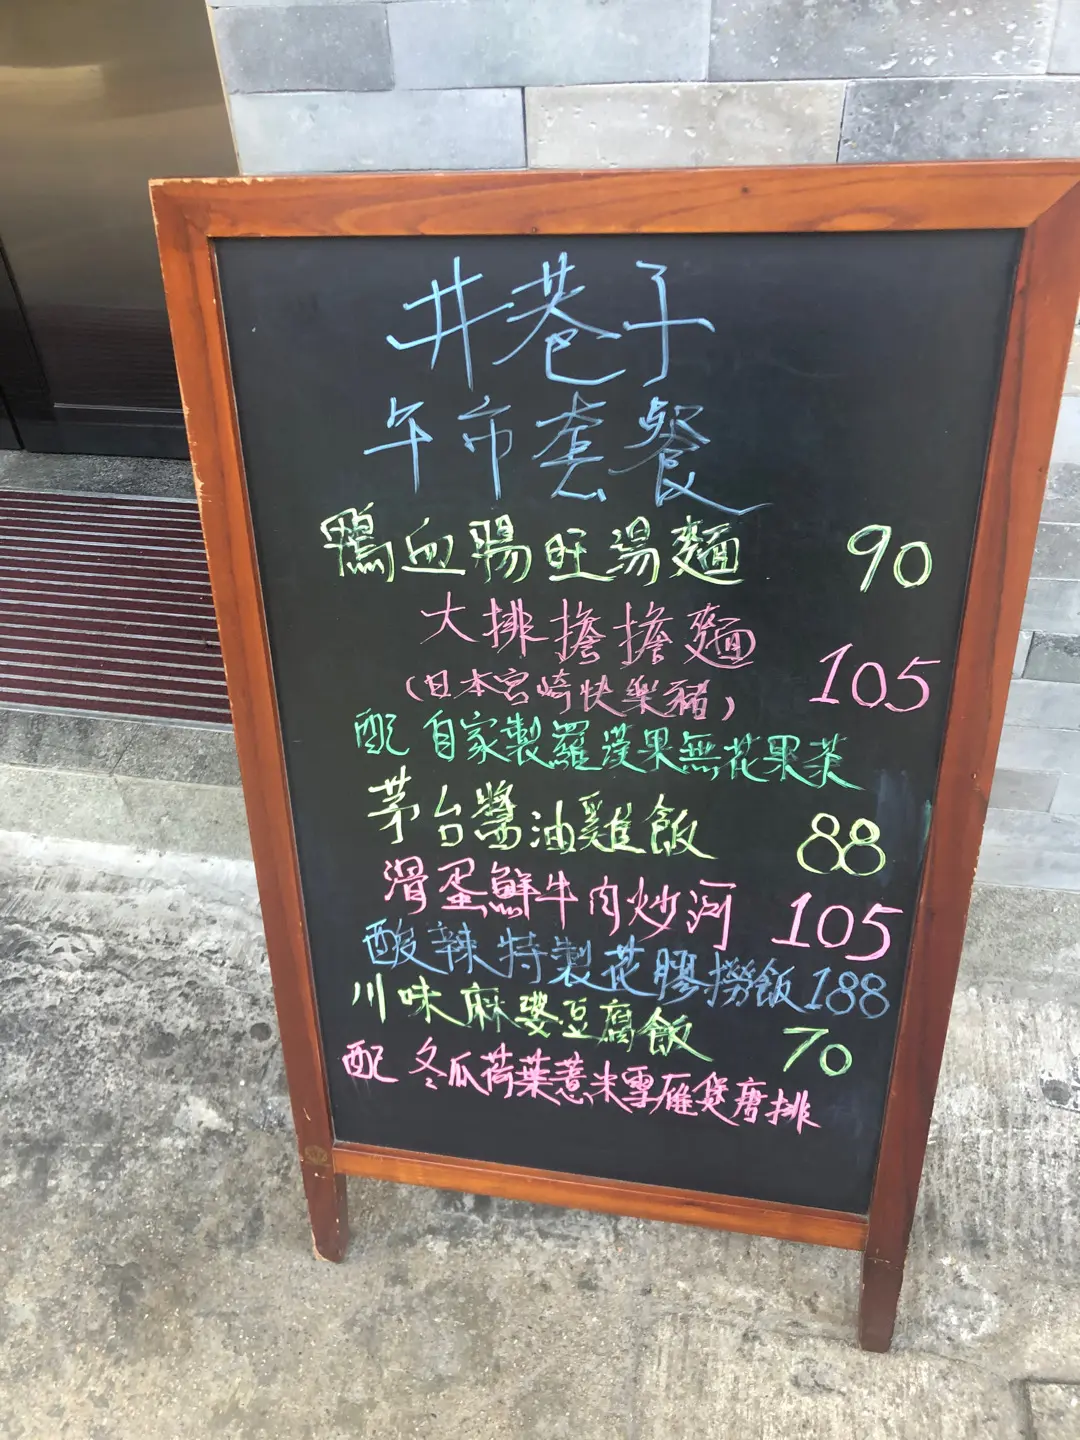 井巷子
午市套餐
鴨血腸旺湯麵 90
大排擔擔麵 105
(日本宮崎快樂豬)
配 自家製羅漢果無花果茶
茅台醬油雞飯 88
滑蛋鮮牛肉炒河 105
酸辣特製花膠撈飯 188
川味麻婆豆腐飯 70
配 冬瓜荷葉薏米雪雁煲唐排